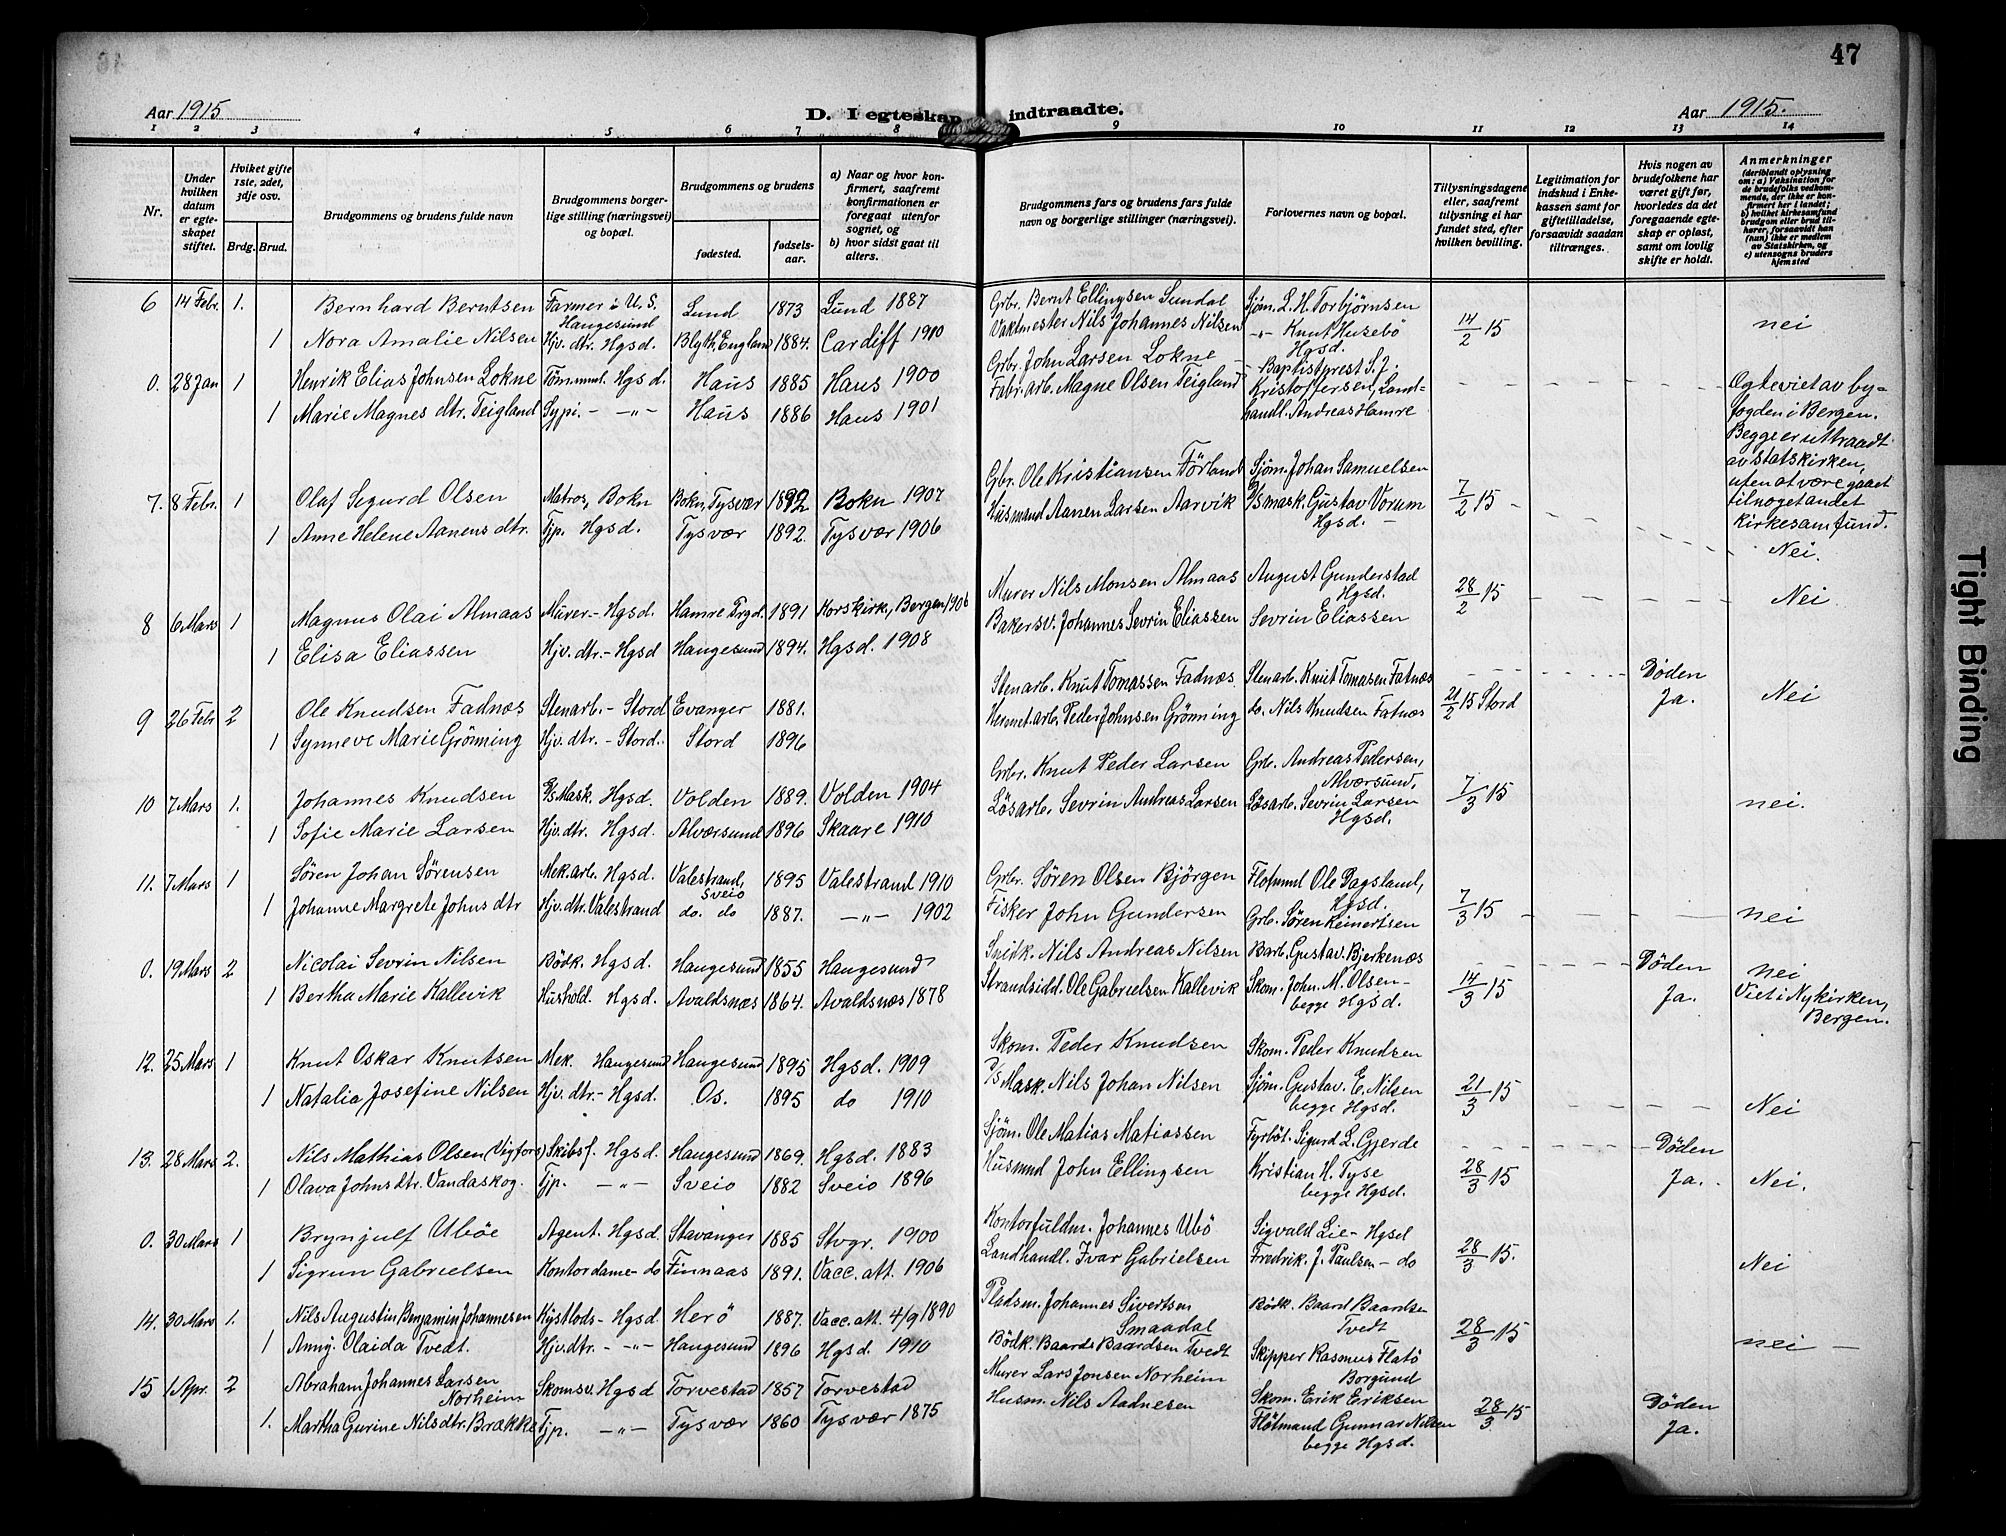 47
Aar 1915
D. I egteskap indtraadte.
Aar 1915.
1 2 3 4 5 6 7 8 9 10 11 12 13 14
Nr.
Under hvilken datum er egteskapet stiftet.
Hvilket gifte 1ste, 2det, 3dje osv.
Brdg. Brud.
Brudgommens og brudens fulde navn
Brudgommens borgerlige stilling (næringsvei) og bopæl.
Brudgommens og brudens
fødested.
fødselsaar.
a) Naar og hvor konfirmert, saafremt konfirmationen er foregaat utenfor sognet, og
b) hvor sidst gaat til alters.
Brudgommens fars og brudens fars fulde navn og borgerlige stillinger (næringsvei).
Forlovernes navn og bopæl.
Tillysningsdagene eller, saafremt tillysning ei har fundet sted, efter hvilken bevilling.
Legitimation for indskud i Enkekassen samt for giftetilladelse, forsaavidt saadan tiltrænges.
Hvis nogen av brudefolkene har været gift før, hvorledes da det foregaaende egteskap er opløst, samt om lovlig skifte er holdt.
Anmerkninger (deriblandt oplysning om: a) Vaksination for de brudefolks vedkommende, der ikke er konfirmert her i landet; b) hvilket kirkesamfund brudgom eller brud tilhører, forsaavidt han (hun) ikke er medlem av Statskirken, og c) utensogns bruders hjemsted
6 14 Febr. 1. Bernhard Berntsen Farmer i U.S. Lund 1873 Lund 1887 Grbr. Bernt Ellingsen Lundal Sjøm. L. H. Torbjørnsen
1 Nora Amalie Nilsen Haugesund Hjv. dtr. Hgsd. Blyth, England 1884. Cardiff 1900 Vaktmester Nils Johannes Nilsen -"- Knut Husebö Hgsd. 14/2 15 nei
0. 28 Jan 1 Henrik Elias Johnsen Lokne Tömmerm. Hgsd. Haus 1885 Haus 1900 Grbr. John Larsen Lokne - Baptistprest S. J.
1 Marie Magnes dtr. Teigland Sypi. - -"- Haus 1886 Haus 1901 Fabr. arb. Magne Olsen Teigland Kristoffersen, Landhandl. Andreas Hamre Ægteviet av byfogden i Bergen. Begge er uttraadt av statskirken, uten at være gaaet til noget andet kirkesamfund.
7. 8 Febr. 1 Olaf Sigurd Olsen Matros, Bokn Bokn, Tysvær 1892 Bokn 1907 Gbr. Ole Kristiansen Førland Sjøm. Johan Samuelsen
1 Anne Helene Aanens dtr. Tjp. Hgsd. Tysvær 1892. Tysvær 1906 Husmand Aanen Larsen Aarvik P/S mask. Gustav Vorum Hgsd. 7/2 15 Nei.
8 6 Mars 1 Magnus Olai Almaas Murer - Hgsd. Hamre Prgd. 1891 Korskirk., Bergen 1906 Murer Nils Monsen Almaas August Gunderstad Hgsd. 28/2 15 Nei
1 Elisa Eliassen Hjv. dtr. - Hgsd Haugesund 1894. Hgsd. 1908 Bakersv. Johannes Sevrin Eliassen Sevrin Eliassen
9 26 Febr 2 Ole Knudsen Fadnæs Stenarb. - Stord Evanger 1881. Stenarb. Knut Tomassen Fadnæs Stenarb. Knut Tomasen Fatnæs Døden
1 Synneve Marie Grönning Hjv. dtr. - Stord. Stord 1896 Hermet. arb. Peder Johnsen Grönning do. Nils Knudsen Fatnæs 21/2 15 Stord Ja. Nei
10 7 Mars 1. Johannes Knudsen P/S Mask. Hgsd. Volden 1889. Volden 1904 Grbr. Knut Peder Larsen Grb. Andreas Pedersen, Alværsund,
1 Sofie Marie Larsen Hjv. dtr. Hgsd. Alværsund 1896 Skaare 1910 Løsarb. Sevrin Andreas Larsen Løsarb. Sevrin Larsen Hgsd. 7/3 15 nei.
11. 7 Mars 1 Søren Johan Sørensen Mek. arb. Hgsd. Valestrand, Sveio 1895 Valestrand 1910 Grbr. Søren Olsen Bjørgen Flotmd Ole Dagsland, Hgsd.
1 Johanne Margrete Johns dtr Hjv. dtr. Valestrand do. do 1887. -"- 1902 Fisker John Gundersen Grb. Søren Reinertsen 7/3 15 nei
0. 19 Mars 2 Nicolai Sevrin Nilsen Bødk. Hgsd. Haugesund 1855 Haugesund Snedk. Nils Andreas Nilsen Barb. Gustav Bjerkenæs Døden nei
1 Bertha Marie Kallevik Hushold. Hgsd. Avaldsnæs 1864. Avaldsnæs 1878 Strandsidd. Ole Gabrielsen Kallevik Skom. John. M. Olsen - begge Hgsd. 14/3 15 Ja. Viet i Nykirken, Bergen.
12. 25 Mars 1 Knut Oskar Knutsen Mek. Haugesund Haugesund 1895 Hgsd. 1909 Skom. Peder Knudsen Skom. Peder Knudsen
1 Natalia Josefine Nilsen Hjv. dtr. - Hgsd. Os. 1895 do 1910 P/S Mask. Nils Johan Nilsen Sjøm. Gustav. E. Nilsen begge Hgsd. 21/3 15 Nei
13. 28 Mars 2. Nils Mathias Olsen (Vigfors) Skibsf. Hgsd. Haugesund 1869. Hgsd. 1883 Sjøm. Ole Matias Matiassen Fyrböt. Sigurd L. Gjerde Døden
1 Olava Johns dtr. Vandaskog. Tjp. -"- Sveio 1882 Sveio 1896 Husmnd John Ellingsen Kristian H. Tyse begge Hgsd. 28/3 15 Ja. Nei.
0. 30 Mars 1 Brynjulf Uböe Agent. Hgsd. Stavanger 1885 Stvgr. 1900 Kontorfuldm. Johannes Ubö Sigvald Lie - Hgsd
1 Sigrun Gabrielsen Kontordame - do Finnaas 1891. Vacc. att. 1906 Landhandl. Ivar Gabrielsen Fredrik. J. Paulsen - do 28/3 15. Nei
14. 30 Mars 1. Nils Augustin Benjamin Johannesen Kystlods - Hgsd Herö 1887. Vacc. att. 4/9 1890 Pladsm. Johannes Sivertsen Smaadal Bödk. Baard Baardsen Tvedt
1 Anny. Olaida Tvedt. Hjv. dtr. -"- Haugesund 1896 Hgsd. 1910 Bödk. Baards Baardsen Tvedt Skipper Rasmus Flatö Borgund 28/3 15 nei -
15 1 Apr. 2 Abraham Johannes Larsen Norheim Skomsv. Hgsd Torvestad 1857 Torvestad Murer Lars Jonsen Norheim Skom. Erik Eriksen Døden
1. Martha Gurine Nilsdtr. Brække Tjp. -"- Tysvær 1860 Tysvær 1875 Husm. Nils Aadnesen Fløtmand Gunnar Nilsen begge Hgsd. 28/3 15 Ja.
Tight Binding